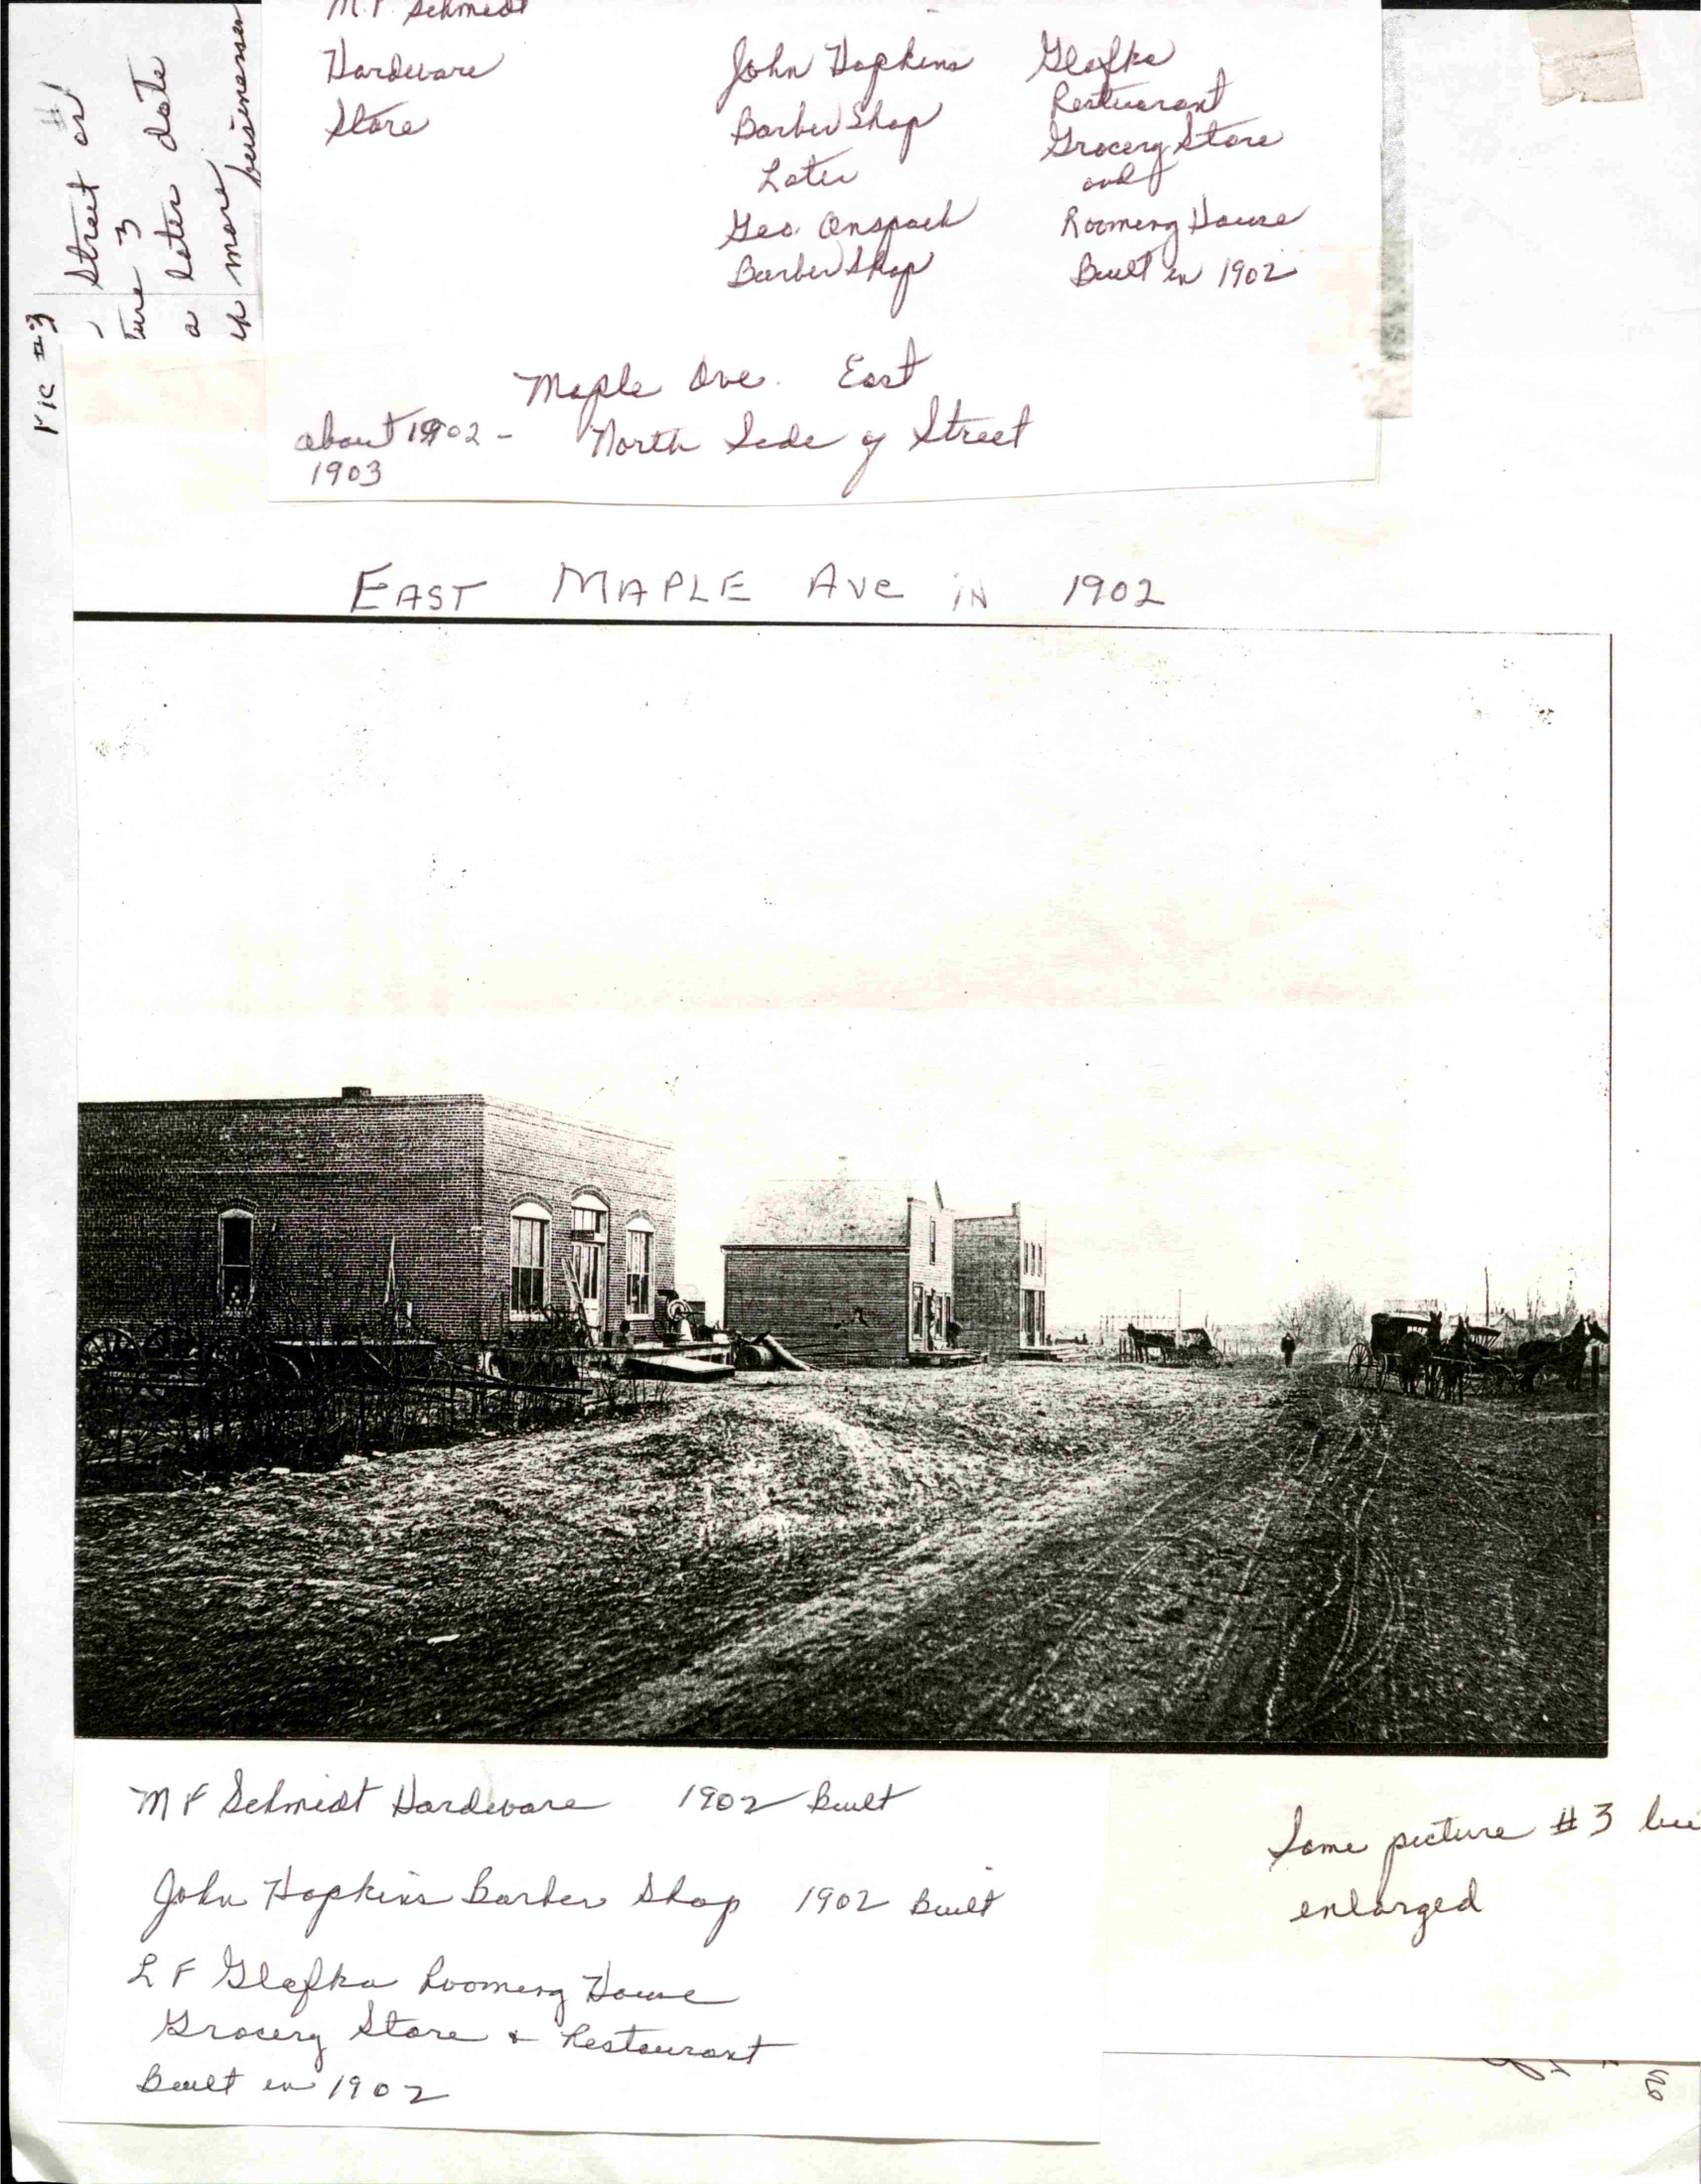 M.F. Schmidt
Hardware
Store
John Hopkins
Barber Shop
Later
Geo. Anspach
Barber Shop
Glafka
Resturarant
Grocery Store
and
Rooming House
Built in 1902
Maple Ave. East
about 1902 -
1903
North Side of Street
Pic #3
Street as
ture 3
a later date
th more businesses
EAST MAPLE AVE IN 1902
M F Schmidt Hardware 1902 Built
John Hopkins Barber Shop 1902 Built
L F Glafka Rooming House
Grocery Store & Restaurant
Built in 1902
Same picture #3
enlarged